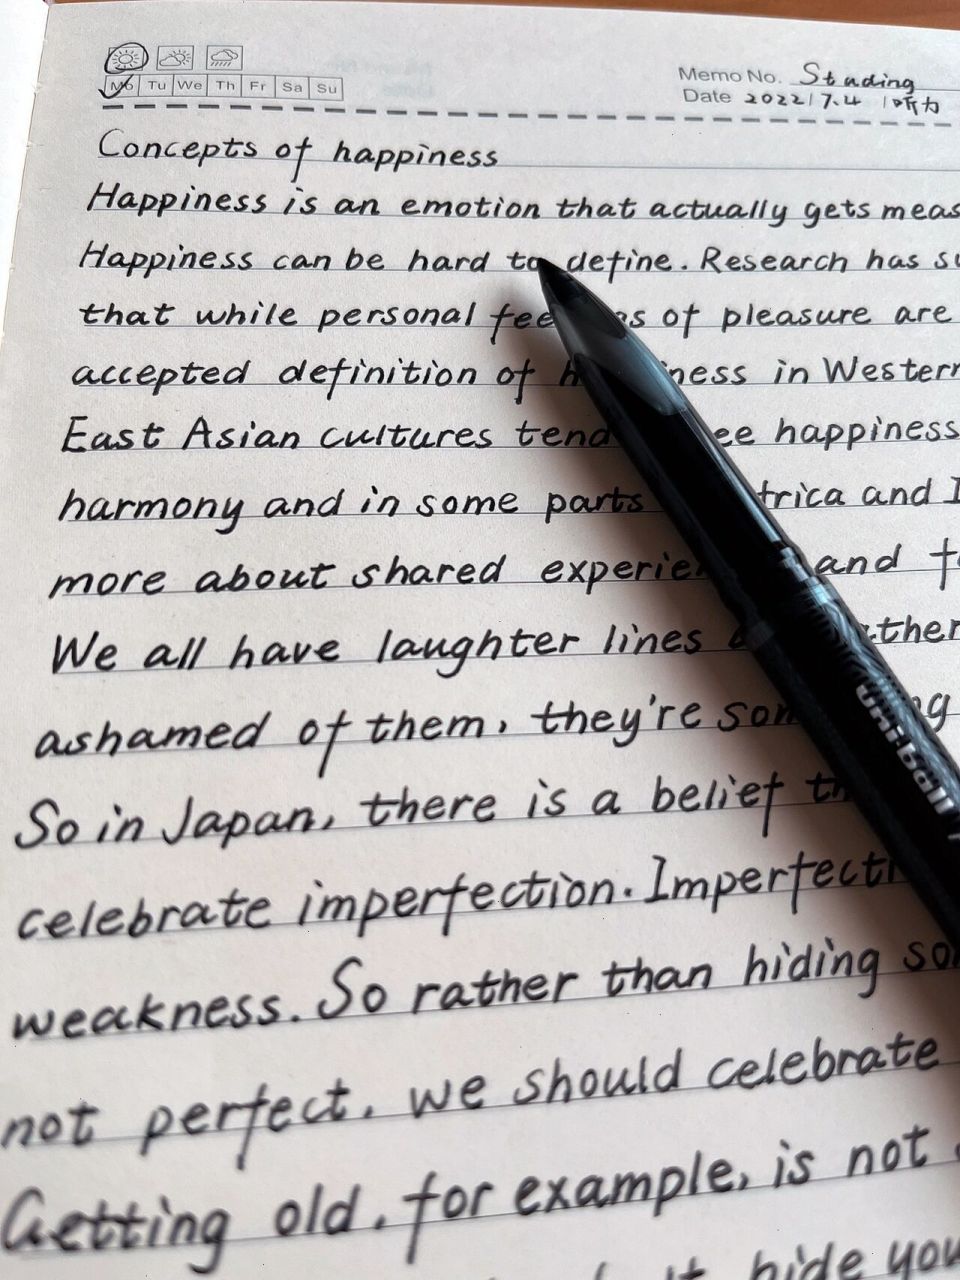 Mo Tu We Th Fr Sa Su
Memo No. Studing
Date 2022/7.4 听力
Concepts of happiness
Happiness is an emotion that actually gets
Happiness can be hard to define. Research has
that while personal of pleasure are
accepted definition of in Western
East Asian cultures happiness
harmony and in some parts and
more about shared and
We all have laughter lines
ashamed of them, they're
So in Japan, there is a belief
celebrate imperfection.
weakness. So rather than hiding
not perfect. we should celebrate
Getting old, for example, is not
hide
uni-ball